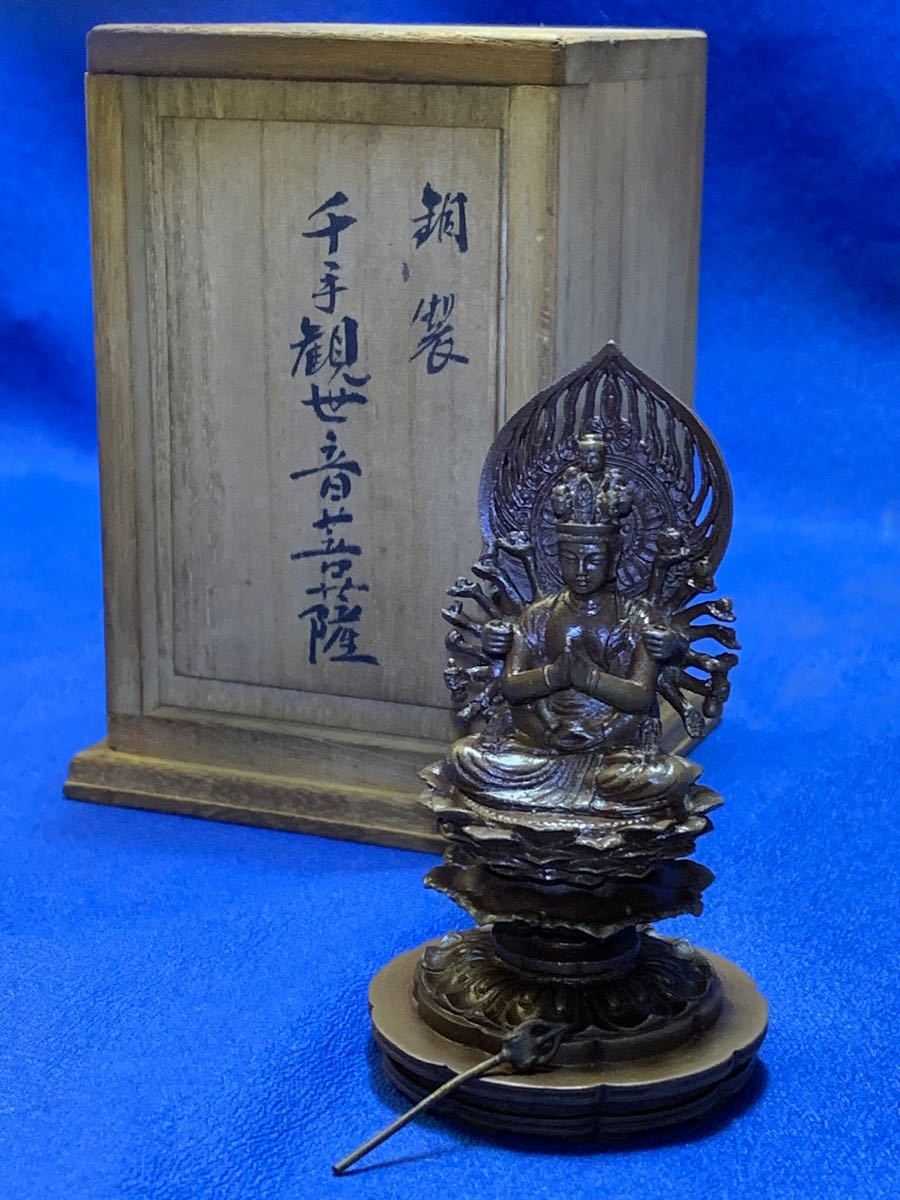 銅製
千手観世音菩薩